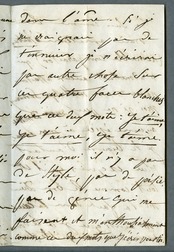 dans l'âme. Si je
ne craignais pas de
t'ennuyer je n'écrirais
pas autre chose sur
ces quatre faces blanches
que ces deux mots : je t'aime,
je t'aime, je t'aime.
pour moi il n'y a pas
de style, pas de poésie
pas de force qui me
fassent et m'
comme ces deux mots